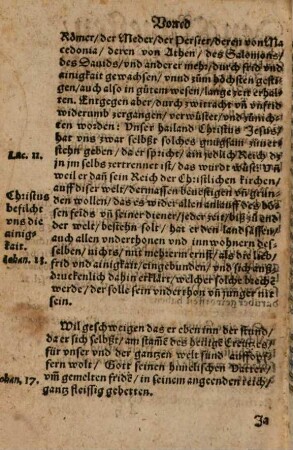 Vorred
Römer/ der Meder/ der Perster/ deren von Ma
cedonia/ deren von Athen/ des Salomons/
des Dauids/ vnd anderer mehr/ durch frid vnd
ainigkait gewachsen/ vnnd zům höchsten gesti-
gen/ auch also in gůtem wesen/ lange zeit erhal
ten. Entgegen aber/ durch zwitracht vñ vnfrid
widerumb zergangen/ verwüstet/ vnd zůnich-
ten worden: Vnser hailand Christus Jesus/
hat vns zwar selbst solches gnůgsam zůuer-
Luc. 11.
stehn geben/ da er spricht/ ain jedlich Reich dz
in jm selbs zertrennet ist/ das wurdt wüst: Vñ
weil er dañ sein Reich der Christlichen kirchen/
auff diser welt/ dermassen beuestigen vñ grün-
Christus
befilcht
vns die
ainig-
kait.
Johan. 13.
den wollen/ das es wider allen anlauff des bö-
sen feids vñ seiner diener/ jeder zeit/ biß zů end
der welt/ bestehn solt/ hat er den landsässen/
auch allen vnderthonen vnd innwohnern des-
selben/ nichts/ mit mehrerm ernst/ als die lieb/
frid vnd ainigkait/ eingebunden/ vnd sich auß-
druckenlich dahin erklärt/ welcher solche breche
werde/ der solle sein vnderthon vñ junger nit
sein.
Wil geschweigen das er eben inn der stund/
da er sich selbst/ am stam̃e des heilige Creutzes
für vnser vnd der gantzen welt sünd auffopf-
fern wolt/ Gott seinen himelischen Vatter/
Johan. 17.
vm̃ gemelten fride/ in seinem angeenden reich/
gantz fleissig gebetten.
Ja